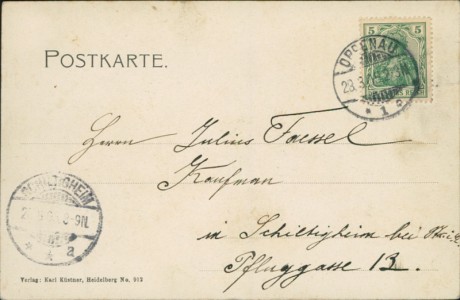 POSTKARTE.
5 5
OPPENAU
* 1 a
Herrn Julius Faessel
Kaufman
in Schiltigheim bei
Pfluggasse 13.
SCHILTIGHEIM
* a
Verlag: Karl Küstner, Heidelberg No. 913